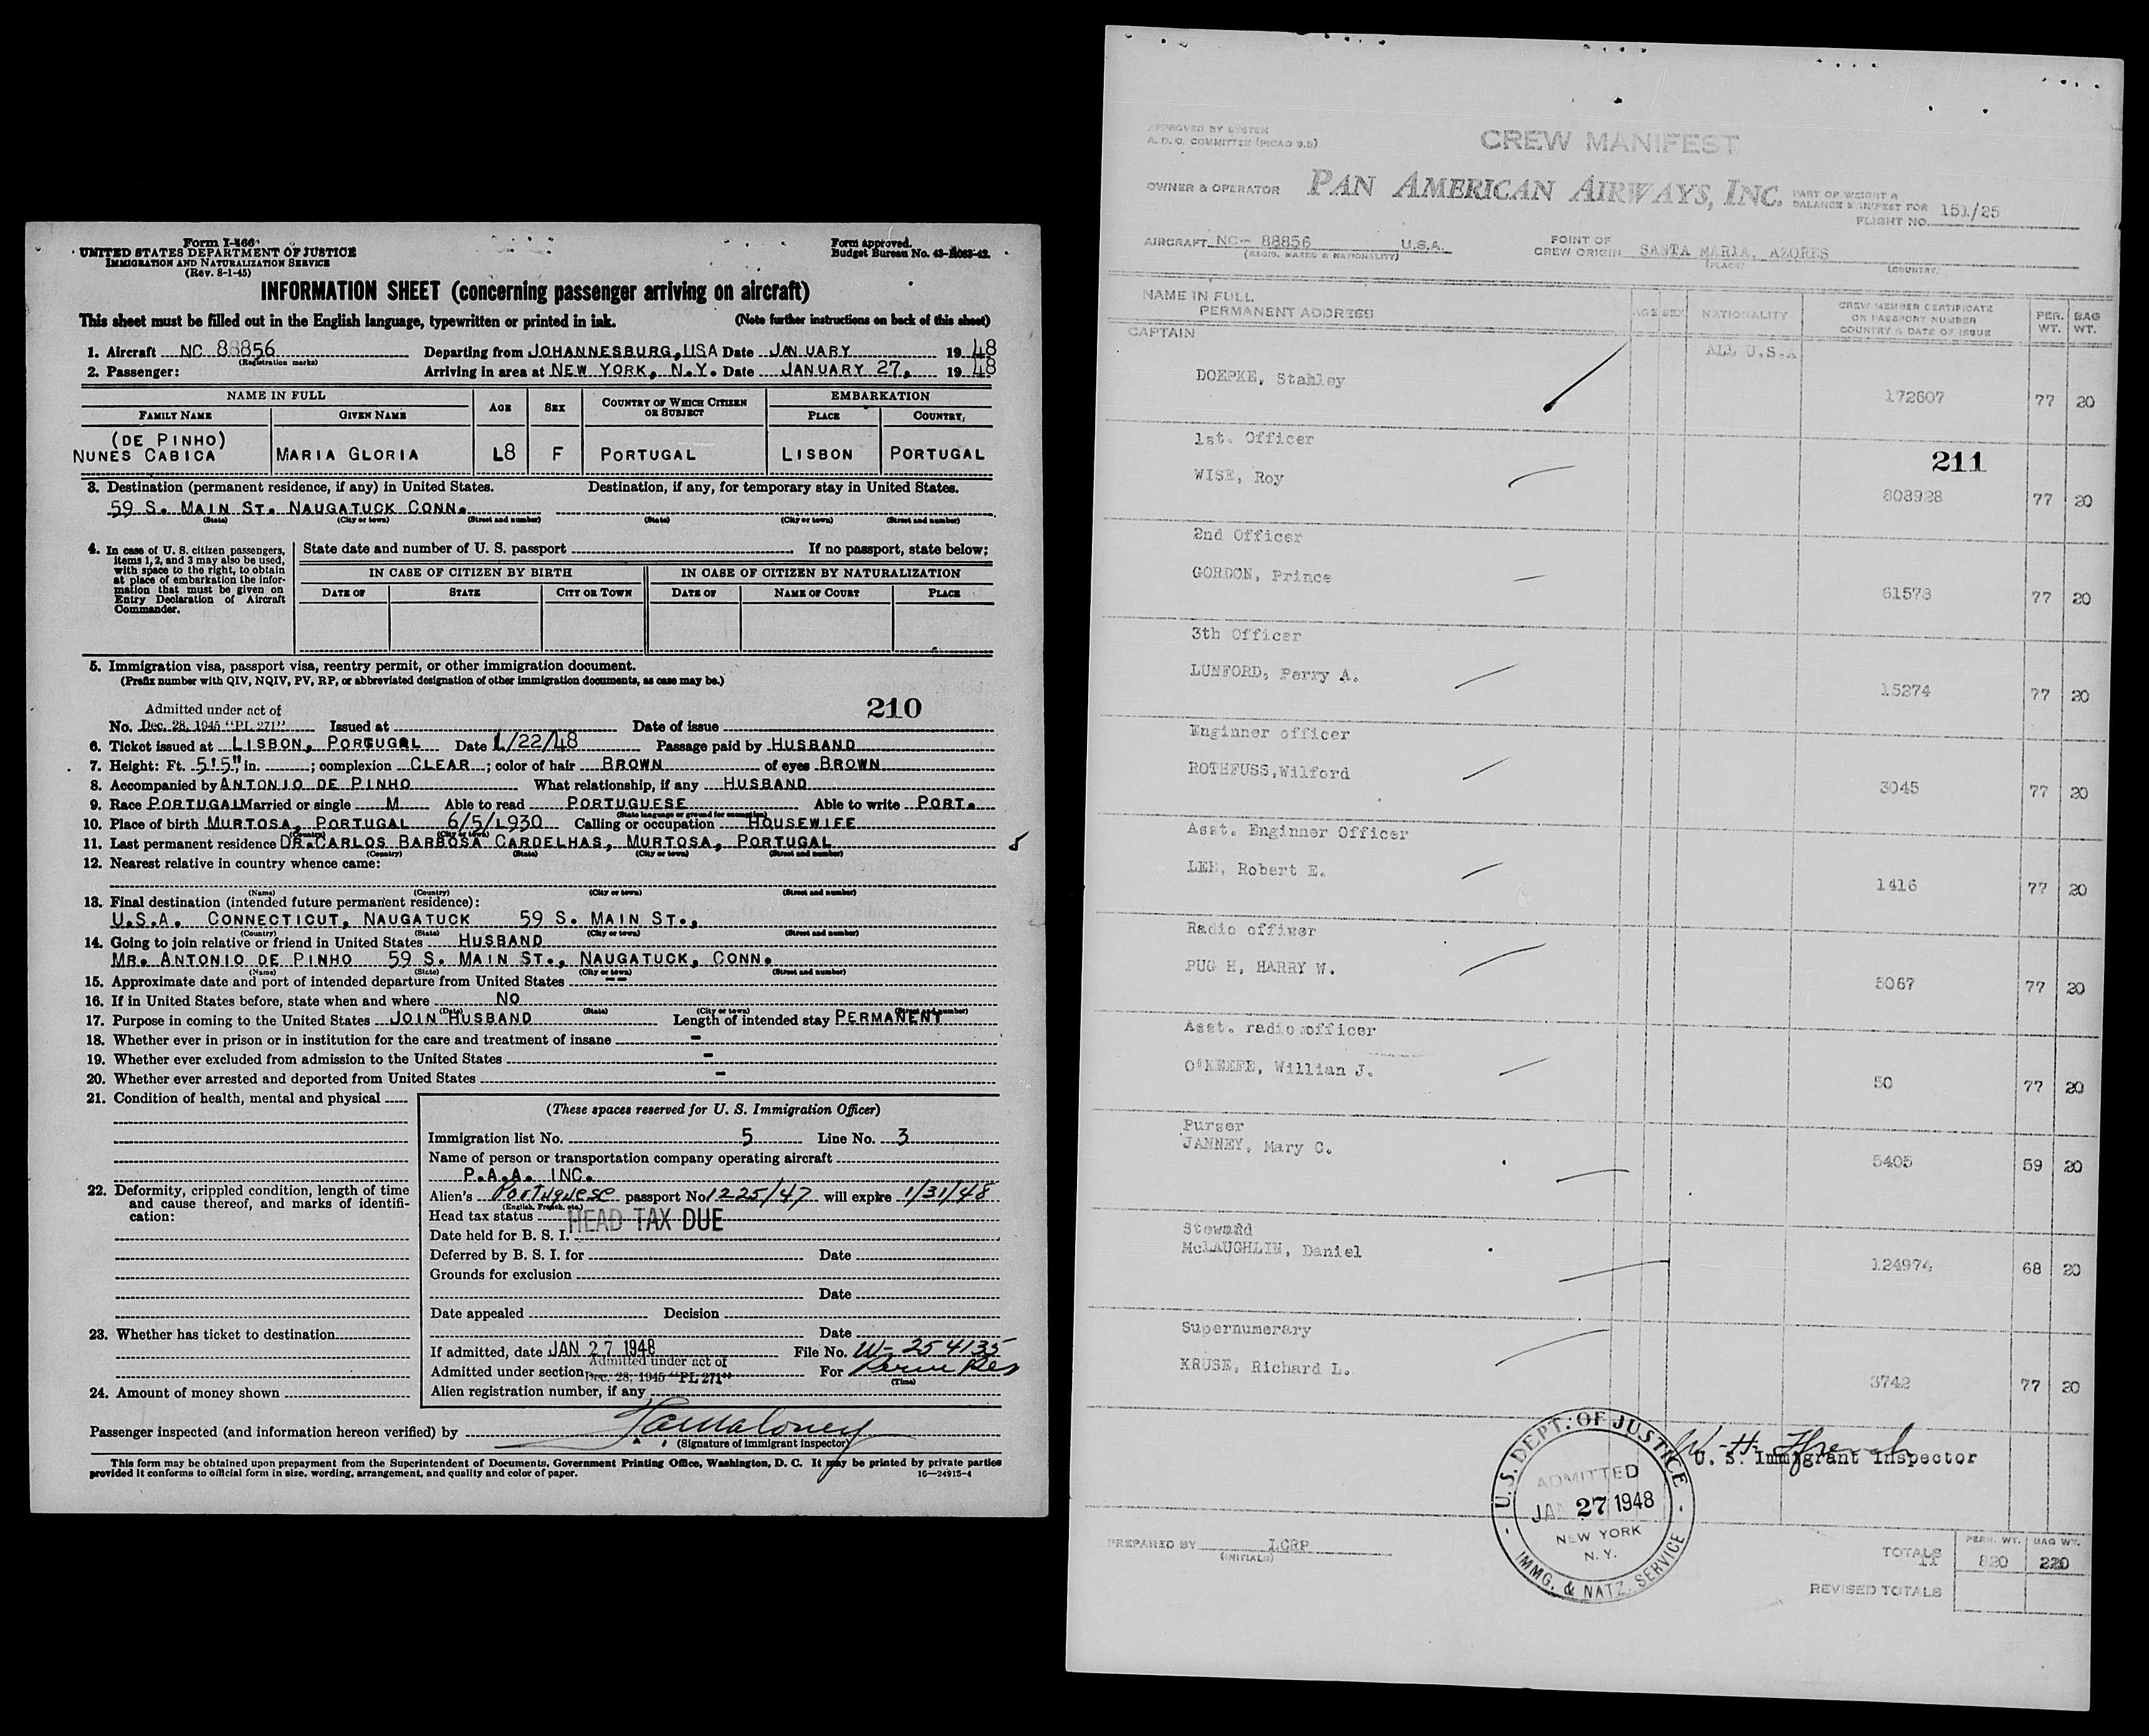 Form I-466
UNITED STATES DEPARTMENT OF JUSTICE
IMMIGRATION AND NATURALIZATION SERVICE
(Rev. 8-1-45)
Form approved.
Budget Bureau No. 43-R063-42.
INFORMATION SHEET (concerning passenger arriving on aircraft)
This sheet must be filled out in the English language, typewritten or printed in ink. (Note further instructions on back of this sheet)
1. Aircraft NC 88856 Departing from JOHANNESBURG,USA Date JANUARY 1948
(Registration marks)
2. Passenger: Arriving in area at NEW YORK, N.Y. Date JANUARY 27, 1948
NAME IN FULL AGE SEX COUNTRY OF WHICH CITIZEN OR SUBJECT EMBARKATION
FAMILY NAME GIVEN NAME PLACE COUNTRY
(DE PINHO)
NUNES CABICA MARIA GLORIA L8 F PORTUGAL LISBON PORTUGAL
3. Destination (permanent residence, if any) in United States. Destination, if any, for temporary stay in United States.
59 S. MAIN ST. NAUGATUCK CONN.
(State) (City or town) (Street and number) (State) (City or town) (Street and number)
4. In case of U. S. citizen passengers, items 1, 2, and 3 may also be used, with space to the right, to obtain at place of embarkation the information that must be given on Entry Declaration of Aircraft Commander.
State date and number of U. S. passport If no passport, state below:
IN CASE OF CITIZEN BY BIRTH IN CASE OF CITIZEN BY NATURALIZATION
DATE OF STATE CITY OR TOWN DATE OF NAME OF COURT PLACE
5. Immigration visa, passport visa, reentry permit, or other immigration document.
(Prefix number with QIV, NQIV, PV, RP, or abbreviated designation of other immigration documents, as case may be.)
210
Admitted under act of
No. Dec. 28, 1945 "PL 271" Issued at Date of issue
6. Ticket issued at LISBON, PORTUGAL Date L/22/48 Passage paid by HUSBAND
7. Height: Ft. 5'5" in. ; complexion CLEAR ; color of hair BROWN of eyes BROWN
8. Accompanied by ANTONIO DE PINHO What relationship, if any HUSBAND
9. Race PORTUGAL Married or single M Able to read PORTUGUESE Able to write PORT.
(State language or ground for exemption)
10. Place of birth MURTOSA, PORTUGAL 6/5/L930 Calling or occupation HOUSEWIFE
(Country) (City or town)
11. Last permanent residence DR.CARLOS BARBOSA CARDELHAS, MURTOSA, PORTUGAL
(Country) (State) (City or town) (Street and number)
12. Nearest relative in country whence came:
(Name) (Country) (City or town) (Street and number)
13. Final destination (intended future permanent residence):
U.S.A. CONNECTICUT, NAUGATUCK 59 S. MAIN ST.,
(Country) (State) (City or town) (Street and number)
14. Going to join relative or friend in United States HUSBAND
MR. ANTONIO DE PINHO 59 S. MAIN ST., NAUGATUCK, CONN.
(Name) (State) (City or town) (Street and number)
15. Approximate date and port of intended departure from United States --
16. If in United States before, state when and where NO
(Date) (State) (City or town) (Street and number)
17. Purpose in coming to the United States JOIN HUSBAND Length of intended stay PERMANENT
18. Whether ever in prison or in institution for the care and treatment of insane -
19. Whether ever excluded from admission to the United States -
20. Whether ever arrested and deported from United States -
21. Condition of health, mental and physical
22. Deformity, crippled condition, length of time and cause thereof, and marks of identification:
23. Whether has ticket to destination
24. Amount of money shown
(These spaces reserved for U. S. Immigration Officer)
Immigration list No. 5 Line No. 3
Name of person or transportation company operating aircraft
P.A.A. INC.
Alien's Portuguese passport No 1225/47 will expire 1/31/48
(English, French, etc.)
Head tax status HEAD TAX DUE
Date held for B. S. I.
Deferred by B. S. I. for Date
Grounds for exclusion
Date
Date appealed Decision
Date
If admitted, date JAN 27 1948 File No. W-254135
Admitted under section Admitted under act of Dec. 28, 1945 "PL 271" For Perm Res
(Time)
Alien registration number, if any
Passenger inspected (and information hereon verified) by
(Signature of immigrant inspector)
This form may be obtained upon prepayment from the Superintendent of Documents, Government Printing Office, Washington, D. C. It may be printed by private parties
provided it conforms to official form in size, wording, arrangement, and quality and color of paper. 16—24915-4
APPROVED BY SYSTEM
A. D. C. COMMITTEE (PICAO 9.5)
CREW MANIFEST
OWNER & OPERATOR PAN AMERICAN AIRWAYS, INC. PART OF WEIGHT & BALANCE MANIFEST FOR FLIGHT NO. 151/25
AIRCRAFT NC- 88856 U.S.A. POINT OF CREW ORIGIN SANTA MARIA, AZORES
(REGIS. MARKS & NATIONALITY) (PLACE) (COUNTRY)
NAME IN FULL
PERMANENT ADDRESS AGE SEX NATIONALITY CREW MEMBER CERTIFICATE OR PASSPORT NUMBER COUNTRY & DATE OF ISSUE PER. WT. BAG WT.
CAPTAIN
ALL U.S.A
DOEPKE, Stanley 172607 77 20
1st. Officer
211
WISE, Roy 808928 77 20
2nd Officer
GORDON, Prince 61573 77 20
3th Officer
LUNFORD, Perry A. 15274 77 20
Enginner officer
ROTHFUSS,Wilford 3045 77 20
Asst. Enginner Officer
LEH, Robert E. 1416 77 20
Radio officer
PUG H, HARRY W. 5067 77 20
Asst. radio officer
O'KEEFE, Willian J. 50 77 20
Purser
JANNEY, Mary C. 5405 59 20
Steward
McLAUGHLIN, Daniel 124974 68 20
Supernumerary
KRUSE, Richard L. 3742 77 20
U. S. Immigrant Inspector
U.S. DEPT. OF JUSTICE
ADMITTED
JAN 27 1948
NEW YORK
N. Y.
IMMG. & NATZ. SERVICE
PREPARED BY LCRP
(INITIALS)
PERS. WT. BAG WT.
TOTALS 11 820 220
REVISED TOTALS